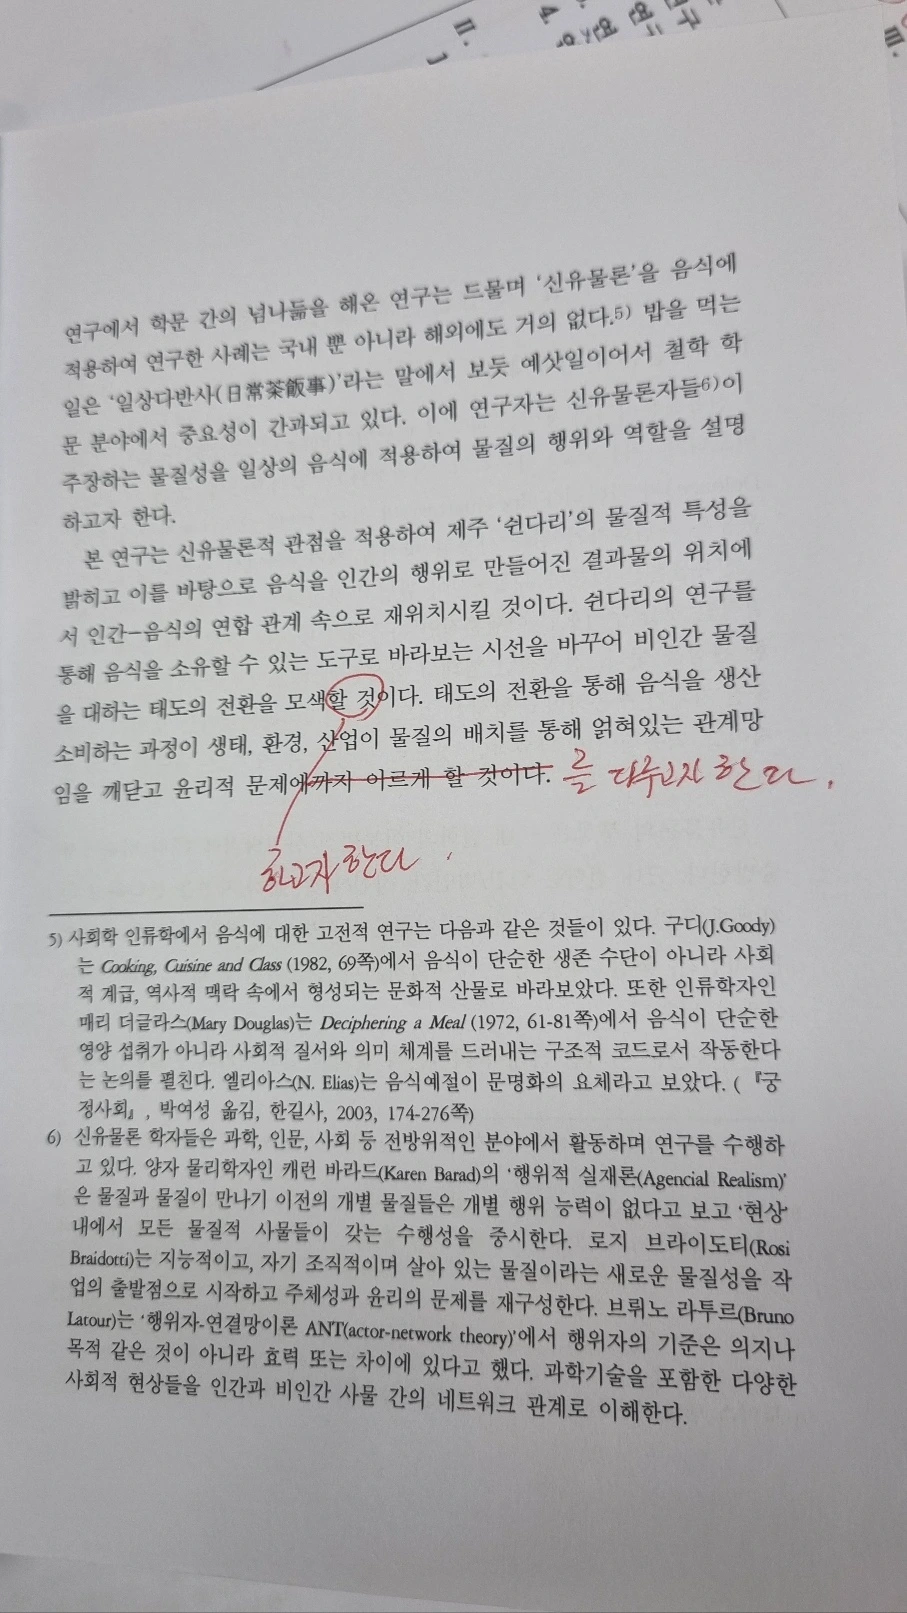 연구에서 학문 간의 넘나듦을 해온 연구는 드물며 ‘신유물론’을 음식에
적용하여 연구한 사례는 국내 뿐 아니라 해외에도 거의 없다.5) 밥을 먹는
일은 ‘일상다반사(日常茶飯事)’라는 말에서 보듯 예삿일이어서 철학 학
문 분야에서 중요성이 간과되고 있다. 이에 연구자는 신유물론자들6)이
주장하는 물질성을 일상의 음식에 적용하여 물질의 행위와 역할을 설명
하고자 한다.
본 연구는 신유물론적 관점을 적용하여 제주 ‘쉰다리’의 물질적 특성을
밝히고 이를 바탕으로 음식을 인간의 행위로 만들어진 결과물의 위치에
서 인간-음식의 연합 관계 속으로 재위치시킬 것이다. 쉰다리의 연구를
통해 음식을 소유할 수 있는 도구로 바라보는 시선을 바꾸어 비인간 물질
을 대하는 태도의 전환을 모색할 것이다. 태도의 전환을 통해 음식을 생산
소비하는 과정이 생태, 환경, 산업이 물질의 배치를 통해 얽혀있는 관계망
임을 깨닫고 윤리적 문제에까지 이르게 할 것이다. 를 다루고자 한다.
하고자 한다.
5) 사회학 인류학에서 음식에 대한 고전적 연구는 다음과 같은 것들이 있다. 구디(J.Goody)
는 Cooking, Cuisine and Class (1982, 69쪽)에서 음식이 단순한 생존 수단이 아니라 사회
적 계급, 역사적 맥락 속에서 형성되는 문화적 산물로 바라보았다. 또한 인류학자인
매리 더글라스(Mary Douglas)는 Deciphering a Meal (1972, 61-81쪽)에서 음식이 단순한
영양 섭취가 아니라 사회적 질서와 의미 체계를 드러내는 구조적 코드로서 작동한다
는 논의를 펼친다. 엘리아스(N. Elias)는 음식예절이 문명화의 요체라고 보았다. ( 『궁
정사회』, 박여성 옮김, 한길사, 2003, 174-276쪽)
6) 신유물론 학자들은 과학, 인문, 사회 등 전방위적인 분야에서 활동하며 연구를 수행하
고 있다. 양자 물리학자인 캐런 바라드(Karen Barad)의 ‘행위적 실재론(Agencial Realism)’
은 물질과 물질이 만나기 이전의 개별 물질들은 개별 행위 능력이 없다고 보고 ‘현상’
내에서 모든 물질적 사물들이 갖는 수행성을 중시한다. 로지 브라이도티(Rosi
Braidotti)는 지능적이고, 자기 조직적이며 살아 있는 물질이라는 새로운 물질성을 작
업의 출발점으로 시작하고 주체성과 윤리의 문제를 재구성한다. 브뤼노 라투르(Bruno
Latour)는 ‘행위자-연결망이론 ANT(actor-network theory)’에서 행위자의 기준은 의지나
목적 같은 것이 아니라 효력 또는 차이에 있다고 했다. 과학기술을 포함한 다양한
사회적 현상들을 인간과 비인간 사물 간의 네트워크 관계로 이해한다.